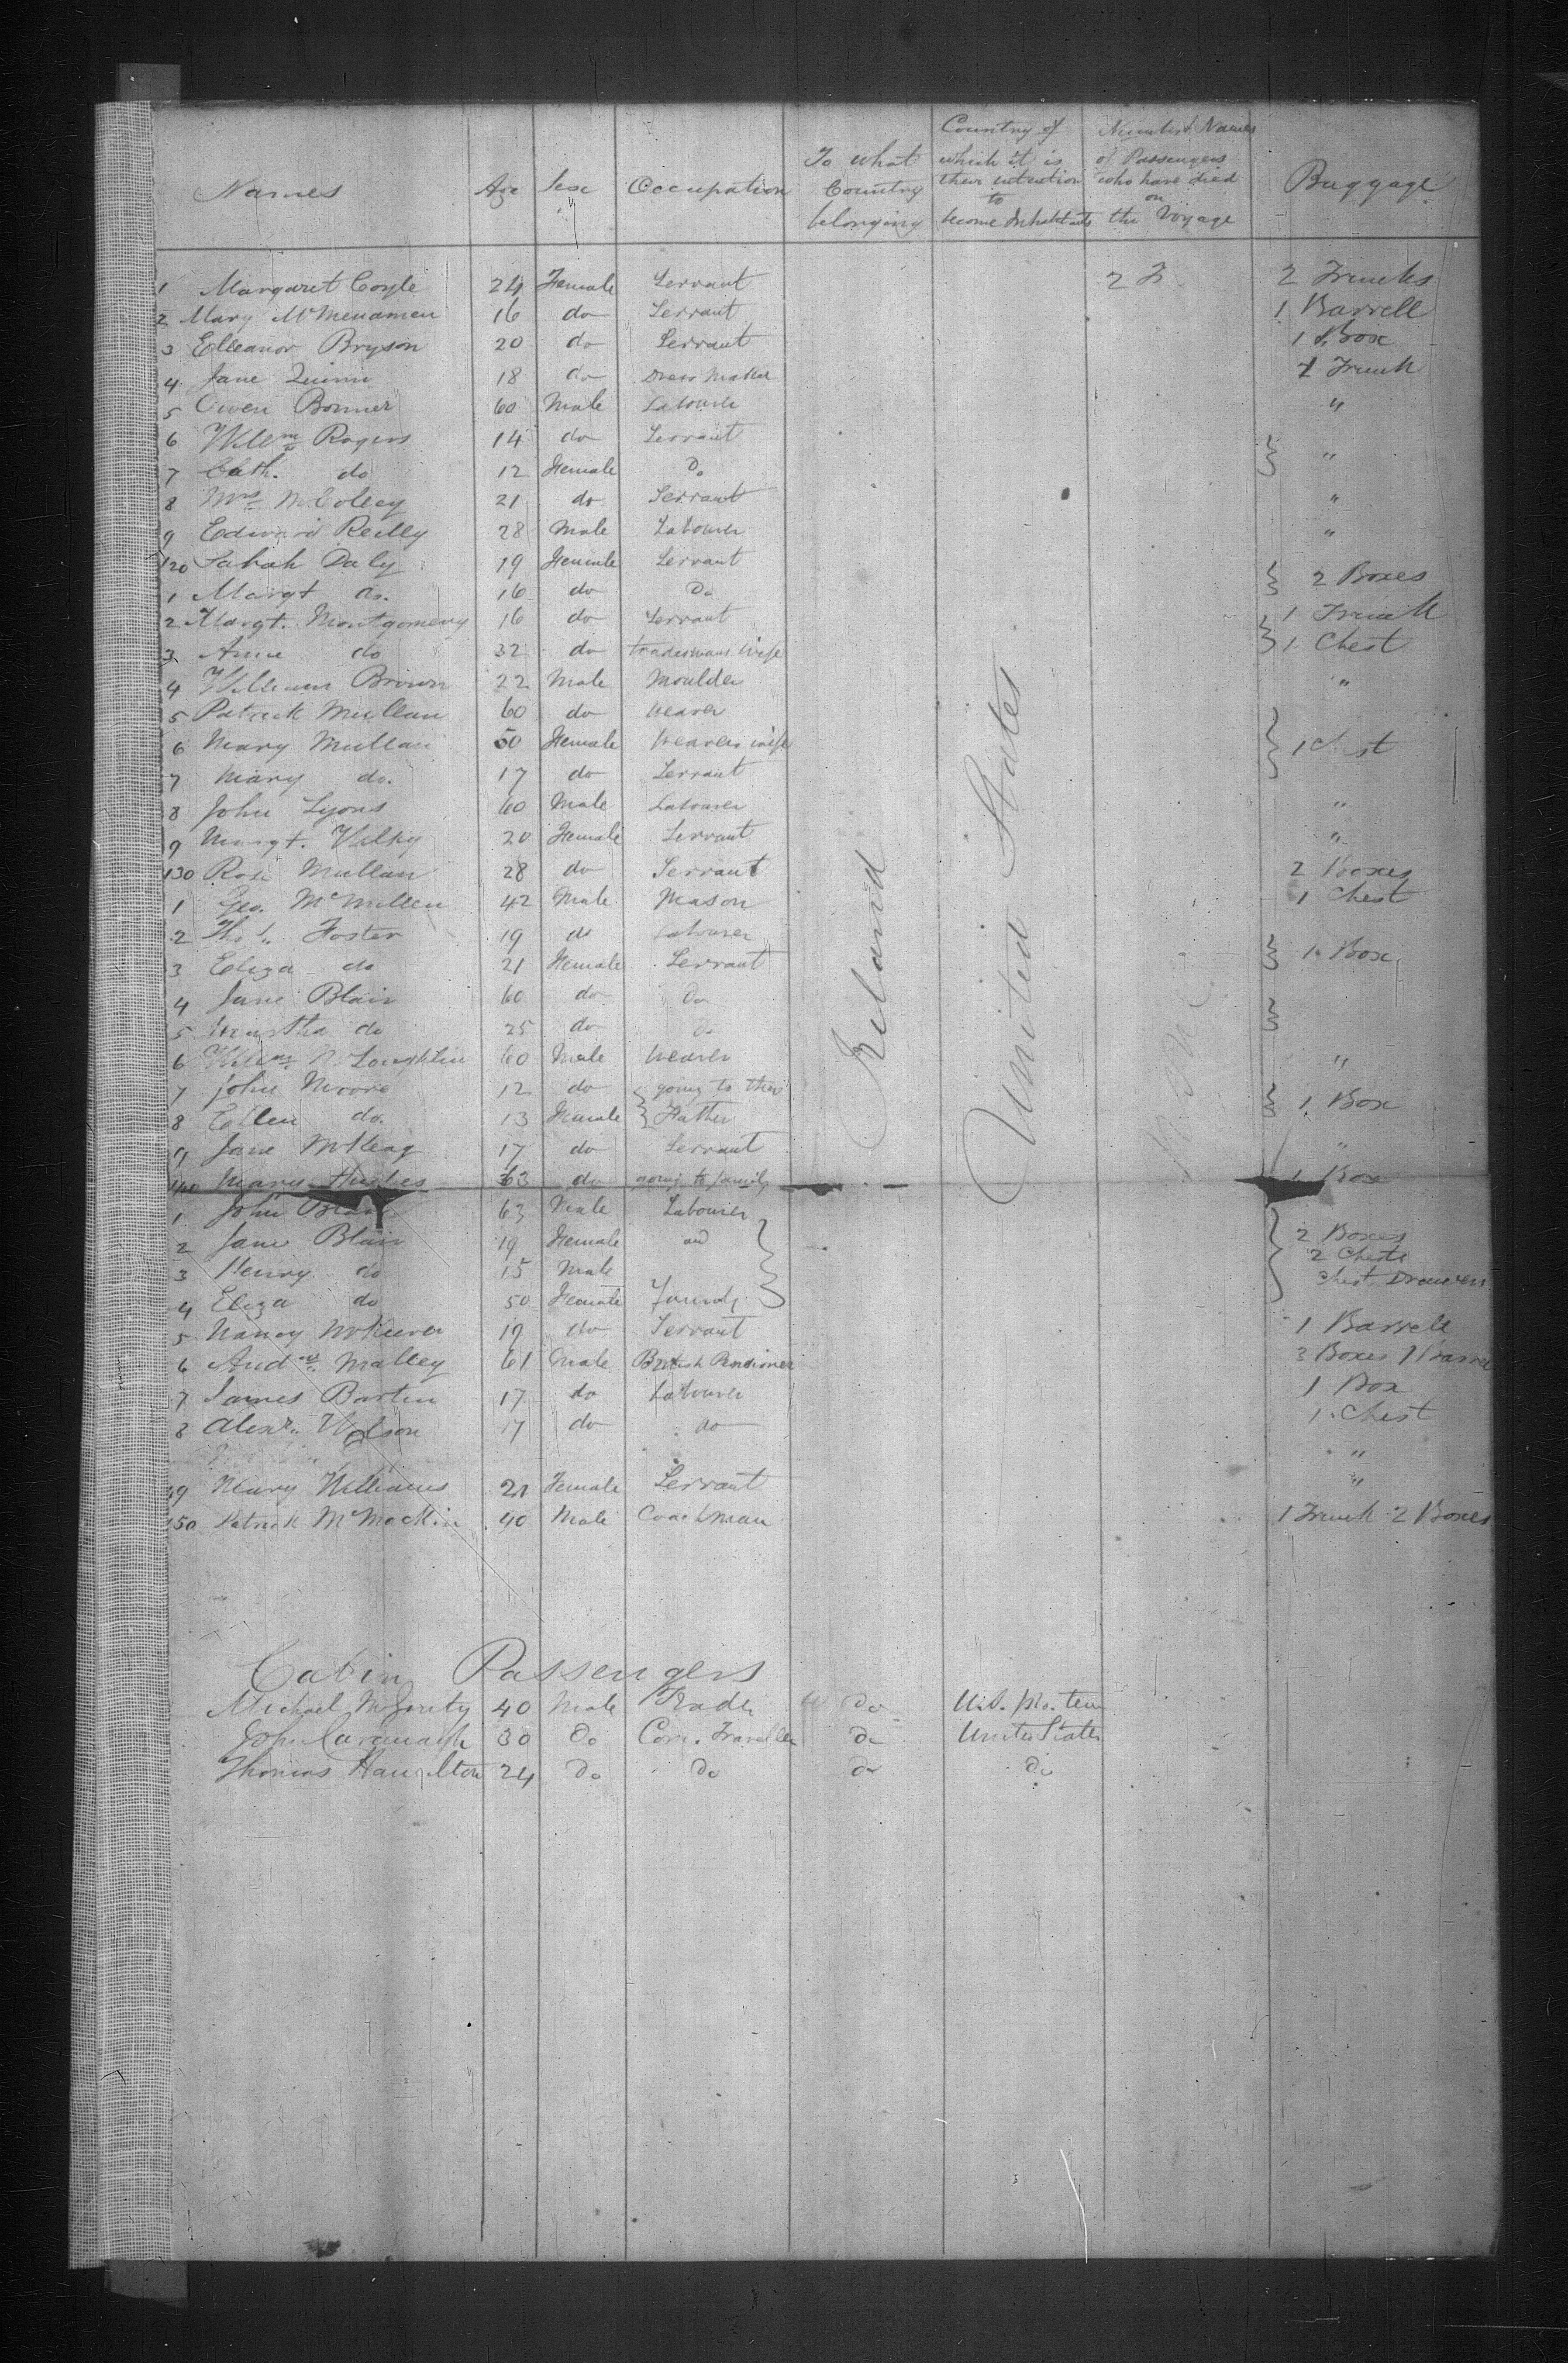 Names Age Sex Occupation To what Country belonging Country of which it is their intention to become Inhabitants Number & Names of Passengers who have died on the Voyage Baggage
1 Margaret Coyle 24 Female Servant 2 2 Trunks
2 Mary McMenamen 16 do Servant 1 Barrell
3 Elleanor Bryson 20 do Servant 1 Box
4 Jane Quinn 18 do Dress Maker 1 Trunk
5 Owen Bonner 60 Male Labourer "
6 Willm Rogers 14 do Servant
7 Cath. do 12 Female Do "
8 Mrs McColley 21 do Servant "
9 Edward Reilly 28 Male Labourer "
120 Sarah Daly 19 Female Servant 2 Boxes
1 Margt do. 16 do Do
2 Margt. Montgomery 16 do Servant 1 Trunk
3 Anne do 32 do tradesmans wife 1 Chest
4 William Brown 22 Male Moulder "
5 Patrick Mullan 60 do Weaver
6 Mary Mullan 50 Female Weavers wife 1 Chest
7 Mary do. 17 do Servant
8 John Lyons 60 Male Labourer "
9 Margt. 20 Female Servant "
130 Rose Mullan 28 do Servant 2 Boxes
1 Geo. McMillen 42 Male Mason 1 Chest
2 Thos. Foster 19 do Labourer
3 Eliza do 21 Female Servant 1 Box
4 Jane Blair 60 do Do
5 Martha do 25 do Do
6 Willm McLoughlin 60 Male Weaver "
7 John Moore 12 do going to their
8 Ellen do. 13 Female Father 1 Box
9 Jane 17 do Servant "
140 Mary Hughes 63 do going to family 1 Box
1 John Blair 63 Male Labourer
2 Jane Blair 19 Female and 2 Boxes
3 Henry do 15 Male 2 Chests
4 Eliza do 50 Female Family Chest Drawers
5 Nancy McKeever 19 do Servant 1 Barrell
6 Andw Malley 61 Male British Pensioner 3 Boxes 1 Barrel
7 James Bartin 17 do Labourer 1 Box
8 Alexr. Wilson 17 do do 1 Chest
"
49 Mary Williams 21 Female Servant "
150 Patrick McMackin 40 Male Coachman 1 Trunk 2 Boxes
Ireland
United States
None
Cabin Passengers
Michael McGinty 40 Male Trader Do U.S. pro. tem
John Cavanagh 30 Do Com. Traveller Do United States
Thomas Hamilton 24 Do Do Do Do